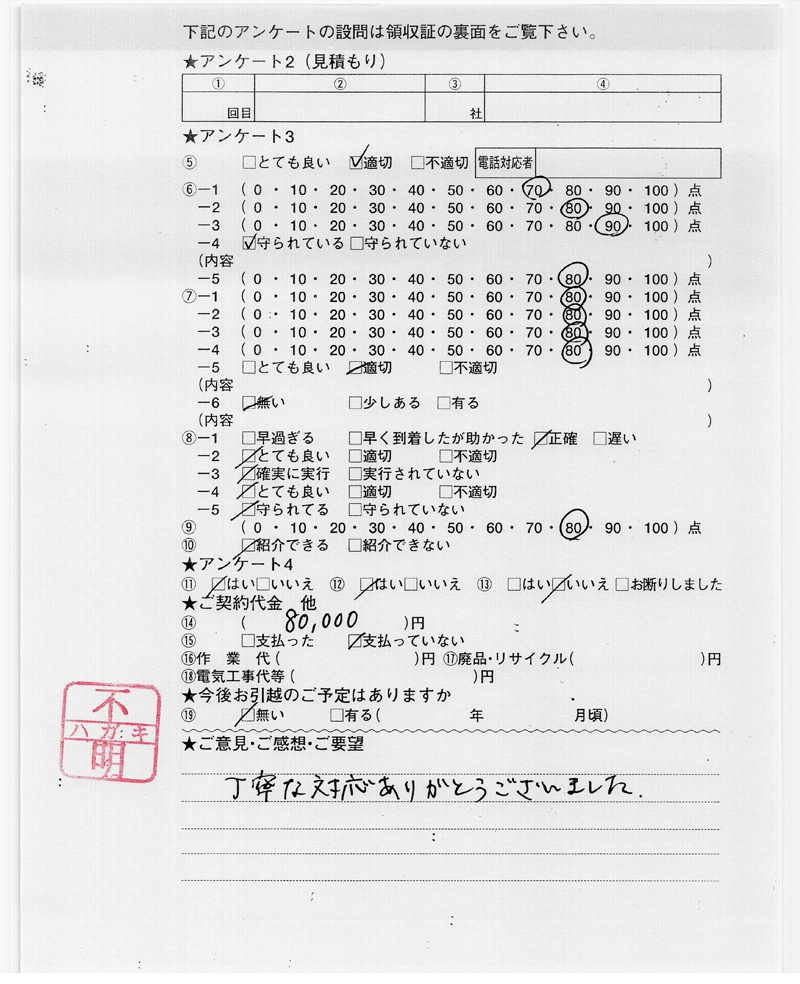 下記のアンケートの設問は領収証の裏面をご覧下さい。
★アンケート2（見積もり）
① ② ③ ④
回目 社
★アンケート3
⑤ □とても良い ☑適切 □不適切 電話対応者
⑥－1 （0・10・20・30・40・50・60・70・80・90・100）点
－2 （0・10・20・30・40・50・60・70・80・90・100）点
－3 （0・10・20・30・40・50・60・70・80・90・100）点
－4 ☑守られている □守られていない
（内容 ）
－5 （0・10・20・30・40・50・60・70・80・90・100）点
⑦－1 （0・10・20・30・40・50・60・70・80・90・100）点
－2 （0・10・20・30・40・50・60・70・80・90・100）点
－3 （0・10・20・30・40・50・60・70・80・90・100）点
－4 （0・10・20・30・40・50・60・70・80・90・100）点
－5 □とても良い ☑適切 □不適切
（内容 ）
－6 ☑無い □少しある □有る
（内容 ）
⑧－1 □早過ぎる □早く到着したが助かった ☑正確 □遅い
－2 ☑とても良い □適切 □不適切
－3 ☑確実に実行 □実行されていない
－4 ☑とても良い □適切 □不適切
－5 ☑守られてる □守られていない
⑨ （0・10・20・30・40・50・60・70・80・90・100）点
⑩ ☑紹介できる □紹介できない
★アンケート4
⑪ ☑はい□いいえ ⑫ ☑はい□いいえ ⑬ □はい☑いいえ □お断りしました
★ご契約代金 他
⑭ （ 80,000 ）円
⑮ □支払った ☑支払っていない
⑯作業代（ ）円 ⑰廃品・リサイクル（ ）円
⑱電気工事代等（ ）円
★今後お引越のご予定はありますか
⑲ ☑無い □有る（ 年 月頃）
不
ハガキ
明
★ご意見・ご感想・ご要望
丁寧な対応ありがとうございました.